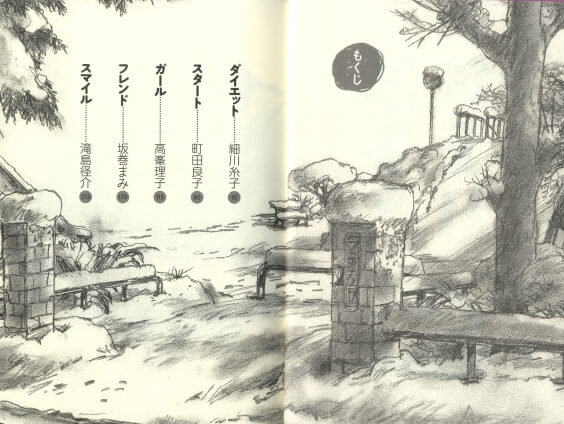 もくじ
ダイエット………細川糸子 10
スタート………町田良子 60
ガール………高峯理子
フレンド………坂巻まみ
スマイル………滝島径介